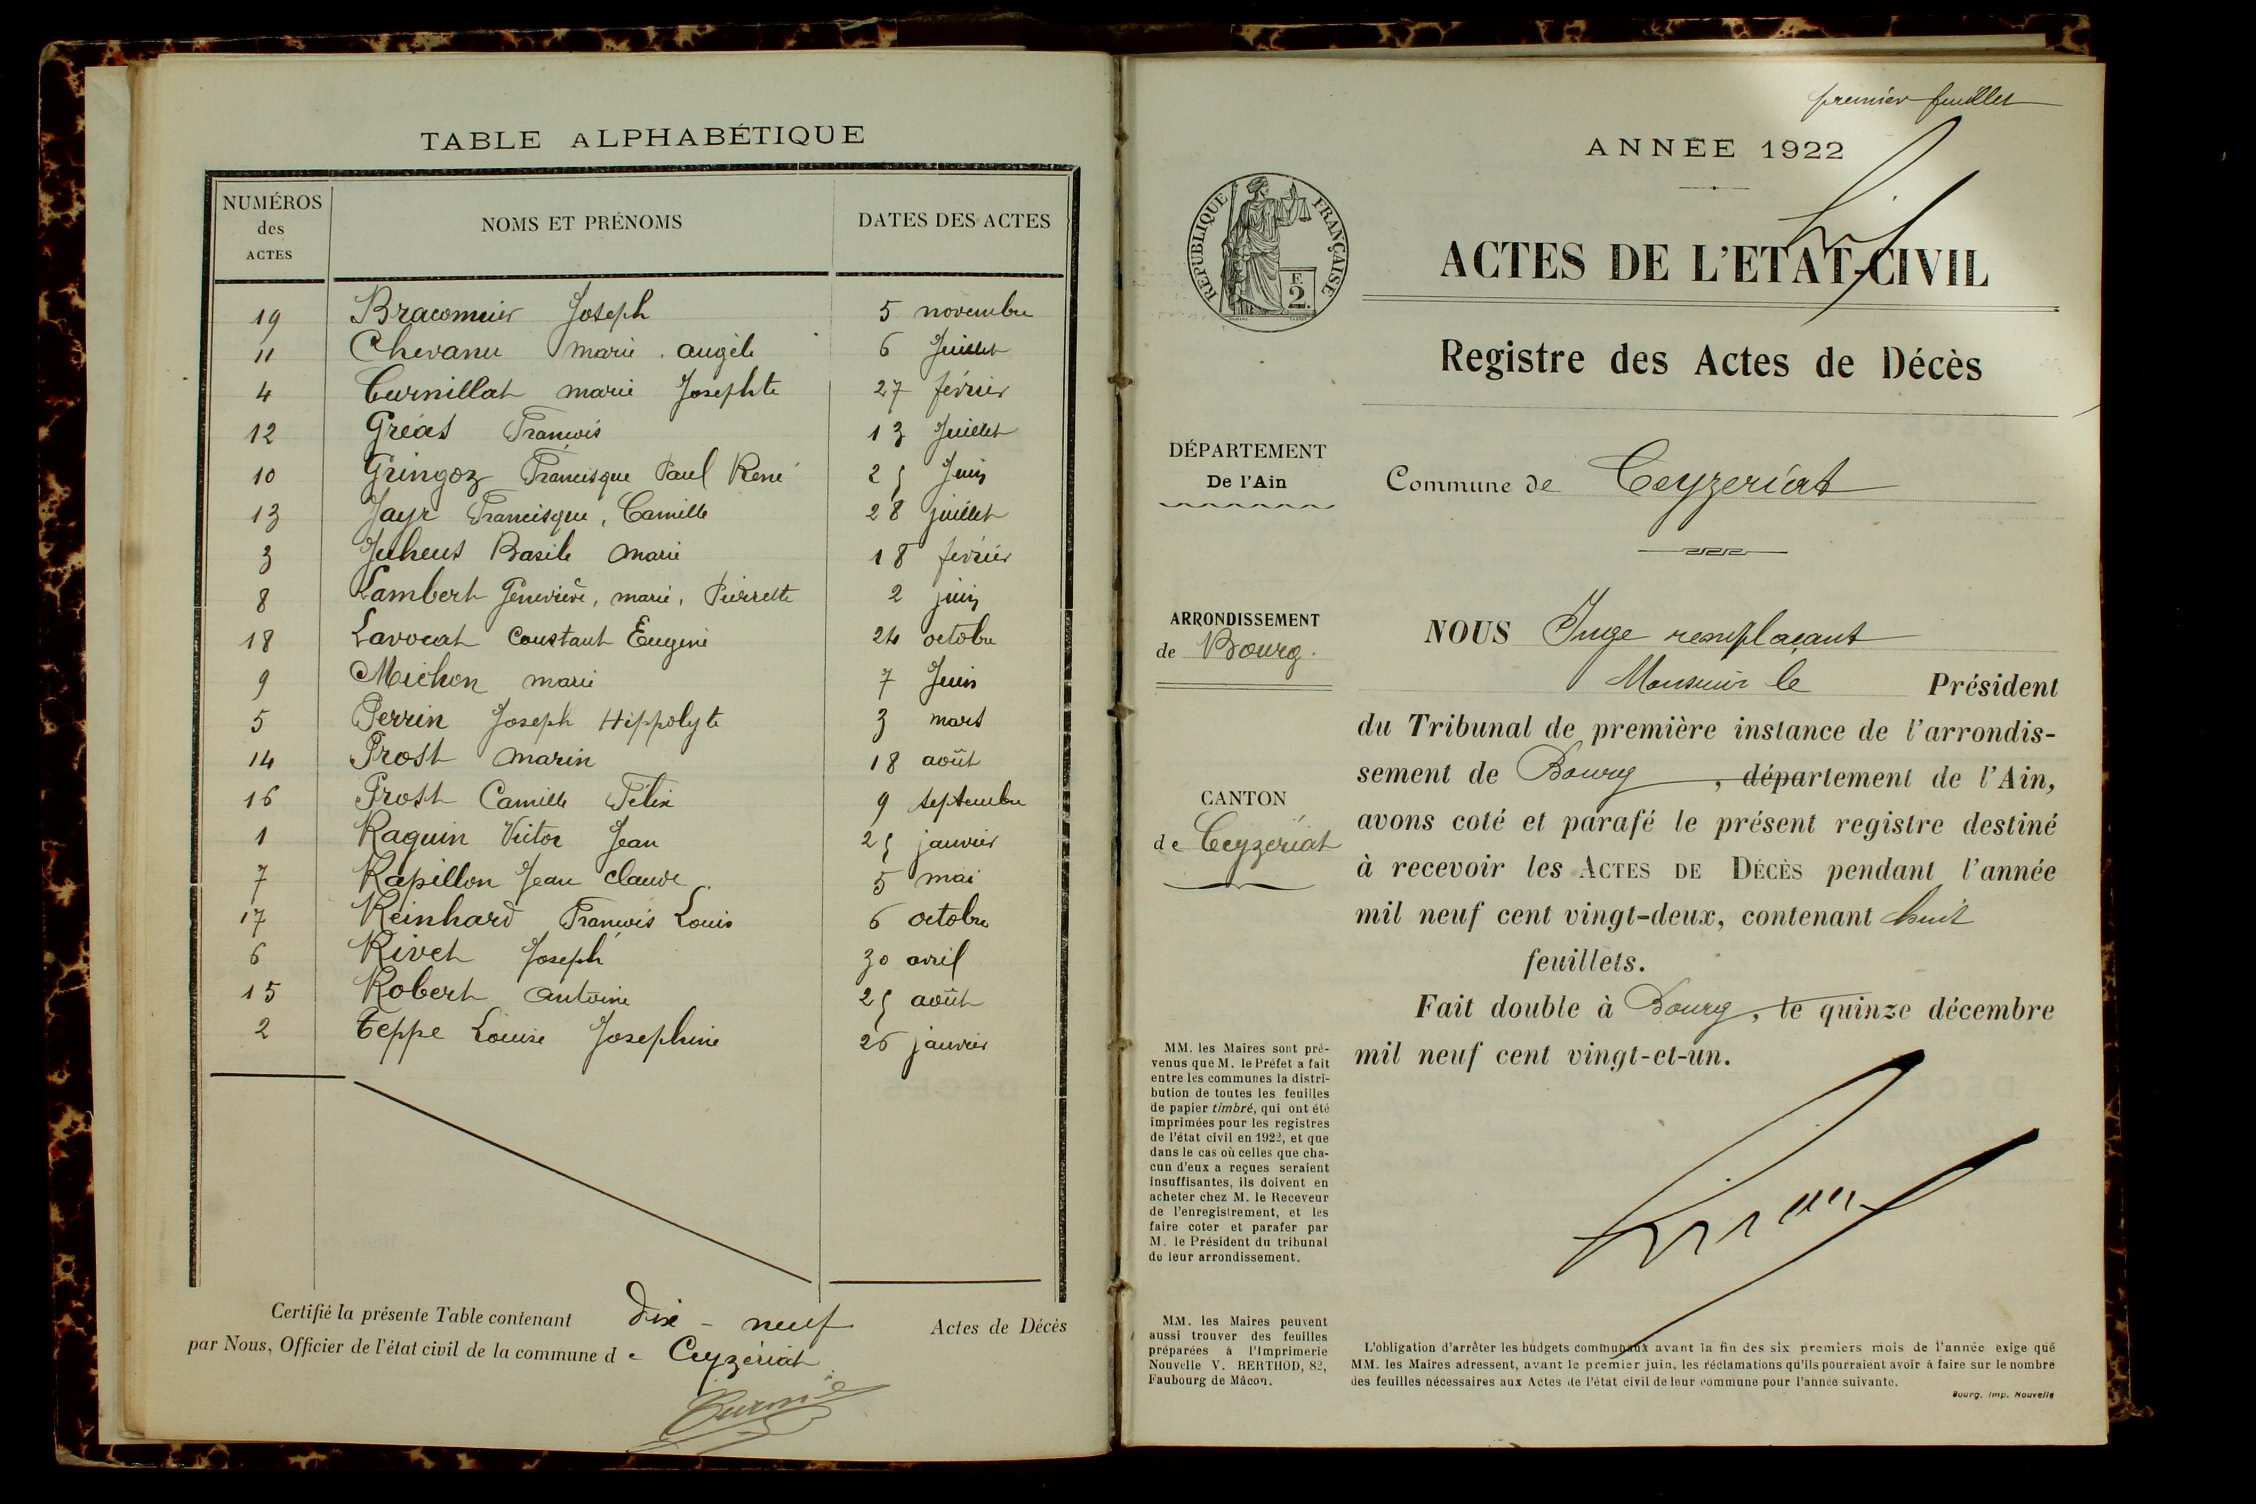 TABLE ALPHABÉTIQUE
NUMÉROS des ACTES NOMS ET PRÉNOMS DATES DES ACTES
19 Joseph 5 novembre
11 marie angèle 6 Juillet
4 Curnillat marie Josephte 27 février
12 Gréas François 13 Juillet
10 Gringoz Francisque Paul René 25 Juin
13 Jayr Francisque, Camille 28 juillet
3 Basile marie 18 février
8 Lambert Geneviève, marie, Pierrette 2 juin
18 Lavocat Constant Eugène 24 octobre
9 Michon marie 7 Juin
5 Perrin Joseph Hippolyte 3 mars
14 Prost marin 18 août
16 Prost Camille Felix 9 septembre
1 Raquin Victor Jean 25 janvier
7 Rapillon Jean Claude 5 mai
17 Reinhard François Louis 6 octobre
6 Rivet Joseph 30 avril
15 Robert antoine 25 août
2 Teppe Louise Josephine 26 janvier
Certifié la présente Table contenant dix-neuf Actes de Décès
par Nous, Officier de l'état civil de la commune de Ceyzériat
premier feuillet
ANNÉE 1922
RÉPUBLIQUE FRANÇAISE
F
2
ACTES DE L'ETAT-CIVIL
Registre des Actes de Décès
DÉPARTEMENT
De l'Ain
Commune de Ceyzeriat
ARRONDISSEMENT
de Bourg.
CANTON
de Ceyzeriat
NOUS Juge remplaçant
Monsieur le Président
du Tribunal de première instance de l'arrondis-
sement de Bourg, département de l'Ain,
avons coté et parafé le présent registre destiné
à recevoir les ACTES DE DÉCÈS pendant l'année
mil neuf cent vingt-deux, contenant huit
feuillets.
Fait double à Bourg, le quinze décembre
mil neuf cent vingt-et-un.
MM. les Maires sont pré-
venus que M. le Préfet a fait
entre les communes la distri-
bution de toutes les feuilles
de papier timbré, qui ont été
imprimées pour les registres
de l'état civil en 1922, et que
dans le cas où celles que cha-
cun d'eux a reçues seraient
insuffisantes, ils doivent en
acheter chez M. le Receveur
de l'enregistrement, et les
faire coter et parafer par
M. le Président du tribunal
de leur arrondissement.
MM. les Maires peuvent
aussi trouver des feuilles
préparées à l'Imprimerie
Nouvelle V. BERTHOD, 82,
Faubourg de Mâcon.
L'obligation d'arrêter les budgets communaux avant la fin des six premiers mois de l'année exige que
MM. les Maires adressent, avant le premier juin, les réclamations qu'ils pourraient avoir à faire sur le nombre
des feuilles nécessaires aux Actes de l'état civil de leur commune pour l'année suivante.
Bourg, Imp. Nouvelle